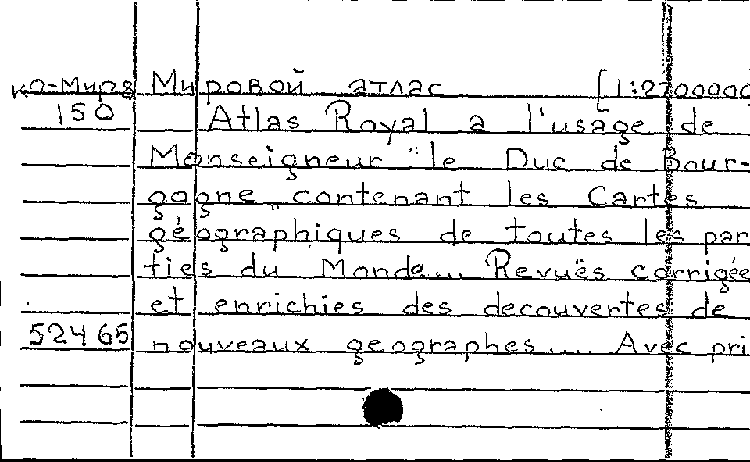 ко-Мира Мировой атлас [1:2700000
150 Atlas Royal a l'usage de
Monseigneur "le Duc de Bour-
gogne" contenant les Cartes
géographiques de toutes les par
ties du Monde... Revuës corrigée
et enrichies des decouvertes de
52465 nouveaux geographes... Avec pri